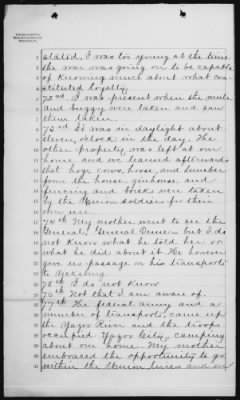 stated, I was too young at the time
the war was going on to be capable
of knowing much about what con-
stituted loyalty.
72nd. I was present when the mule
and buggy were taken and saw
them taken.
73rd It was in daylight about
eleven oclock in the day. The
other property was left at our
home and we learned afterwards
that hogs, cows, horse, and lumber
from the house, ginhouse and
fencing and bricks were taken
by the Union soldiers for their
own use.
74th My mother went to see the
General, General but I do
not know what he told her or
what he did about it. He however
gave us passage on his transports
to Vicksburg
75th I do not know
76th Not that I am aware of.
77th The federal army and a
number of transports, came up
the Yazoo River and the troops
occupied Yazoo City, camping
about our home. My mother
embraced the opportunity to go
within the Union lines and we